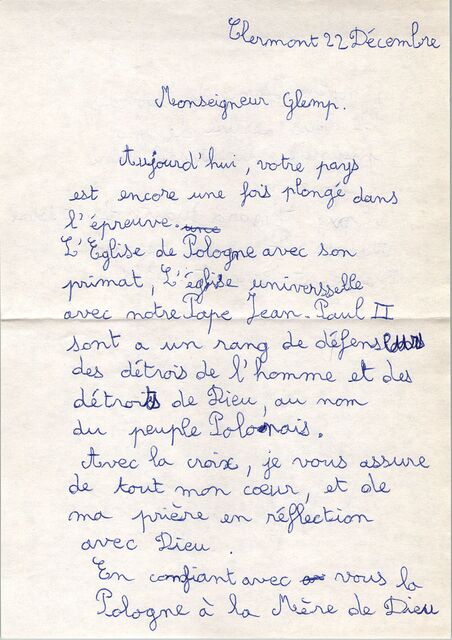 Clermont 22 Décembre
Monseigneur Glemp.
Aujourd'hui, votre pays
est encore une fois plongé dans
l'épreuve. une
L'Eglise de Pologne avec son
primat, L'église universselle
avec notre Pape Jean-Paul II
sont a un rang de défenseurs
des détrois de l'homme et des
détroits de Dieu, au nom
du peuple Polonais.
Avec la croix, je vous assure
de tout mon cœur, et de
ma prière en réflection
avec Dieu.
En confiant avec vous la
Pologne à la Mère de Dieu